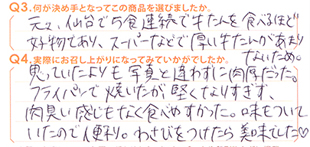 Q3.何が決め手となってこの商品を選びましたか。
元々、仙台で5食連続で牛たんを食べるほど
好物であり、スーパーなどで厚い牛たんがあまり
ないため。
Q4.実際にお召し上がりになってみていかがでしたか。
思っていたよりも写真と違わずに肉厚だった。
フライパンで焼いたが堅くなりすぎず、
肉臭い感じもなく食べやすかった。味もついて
いたので便利。わさびをつけたら美味でした♡